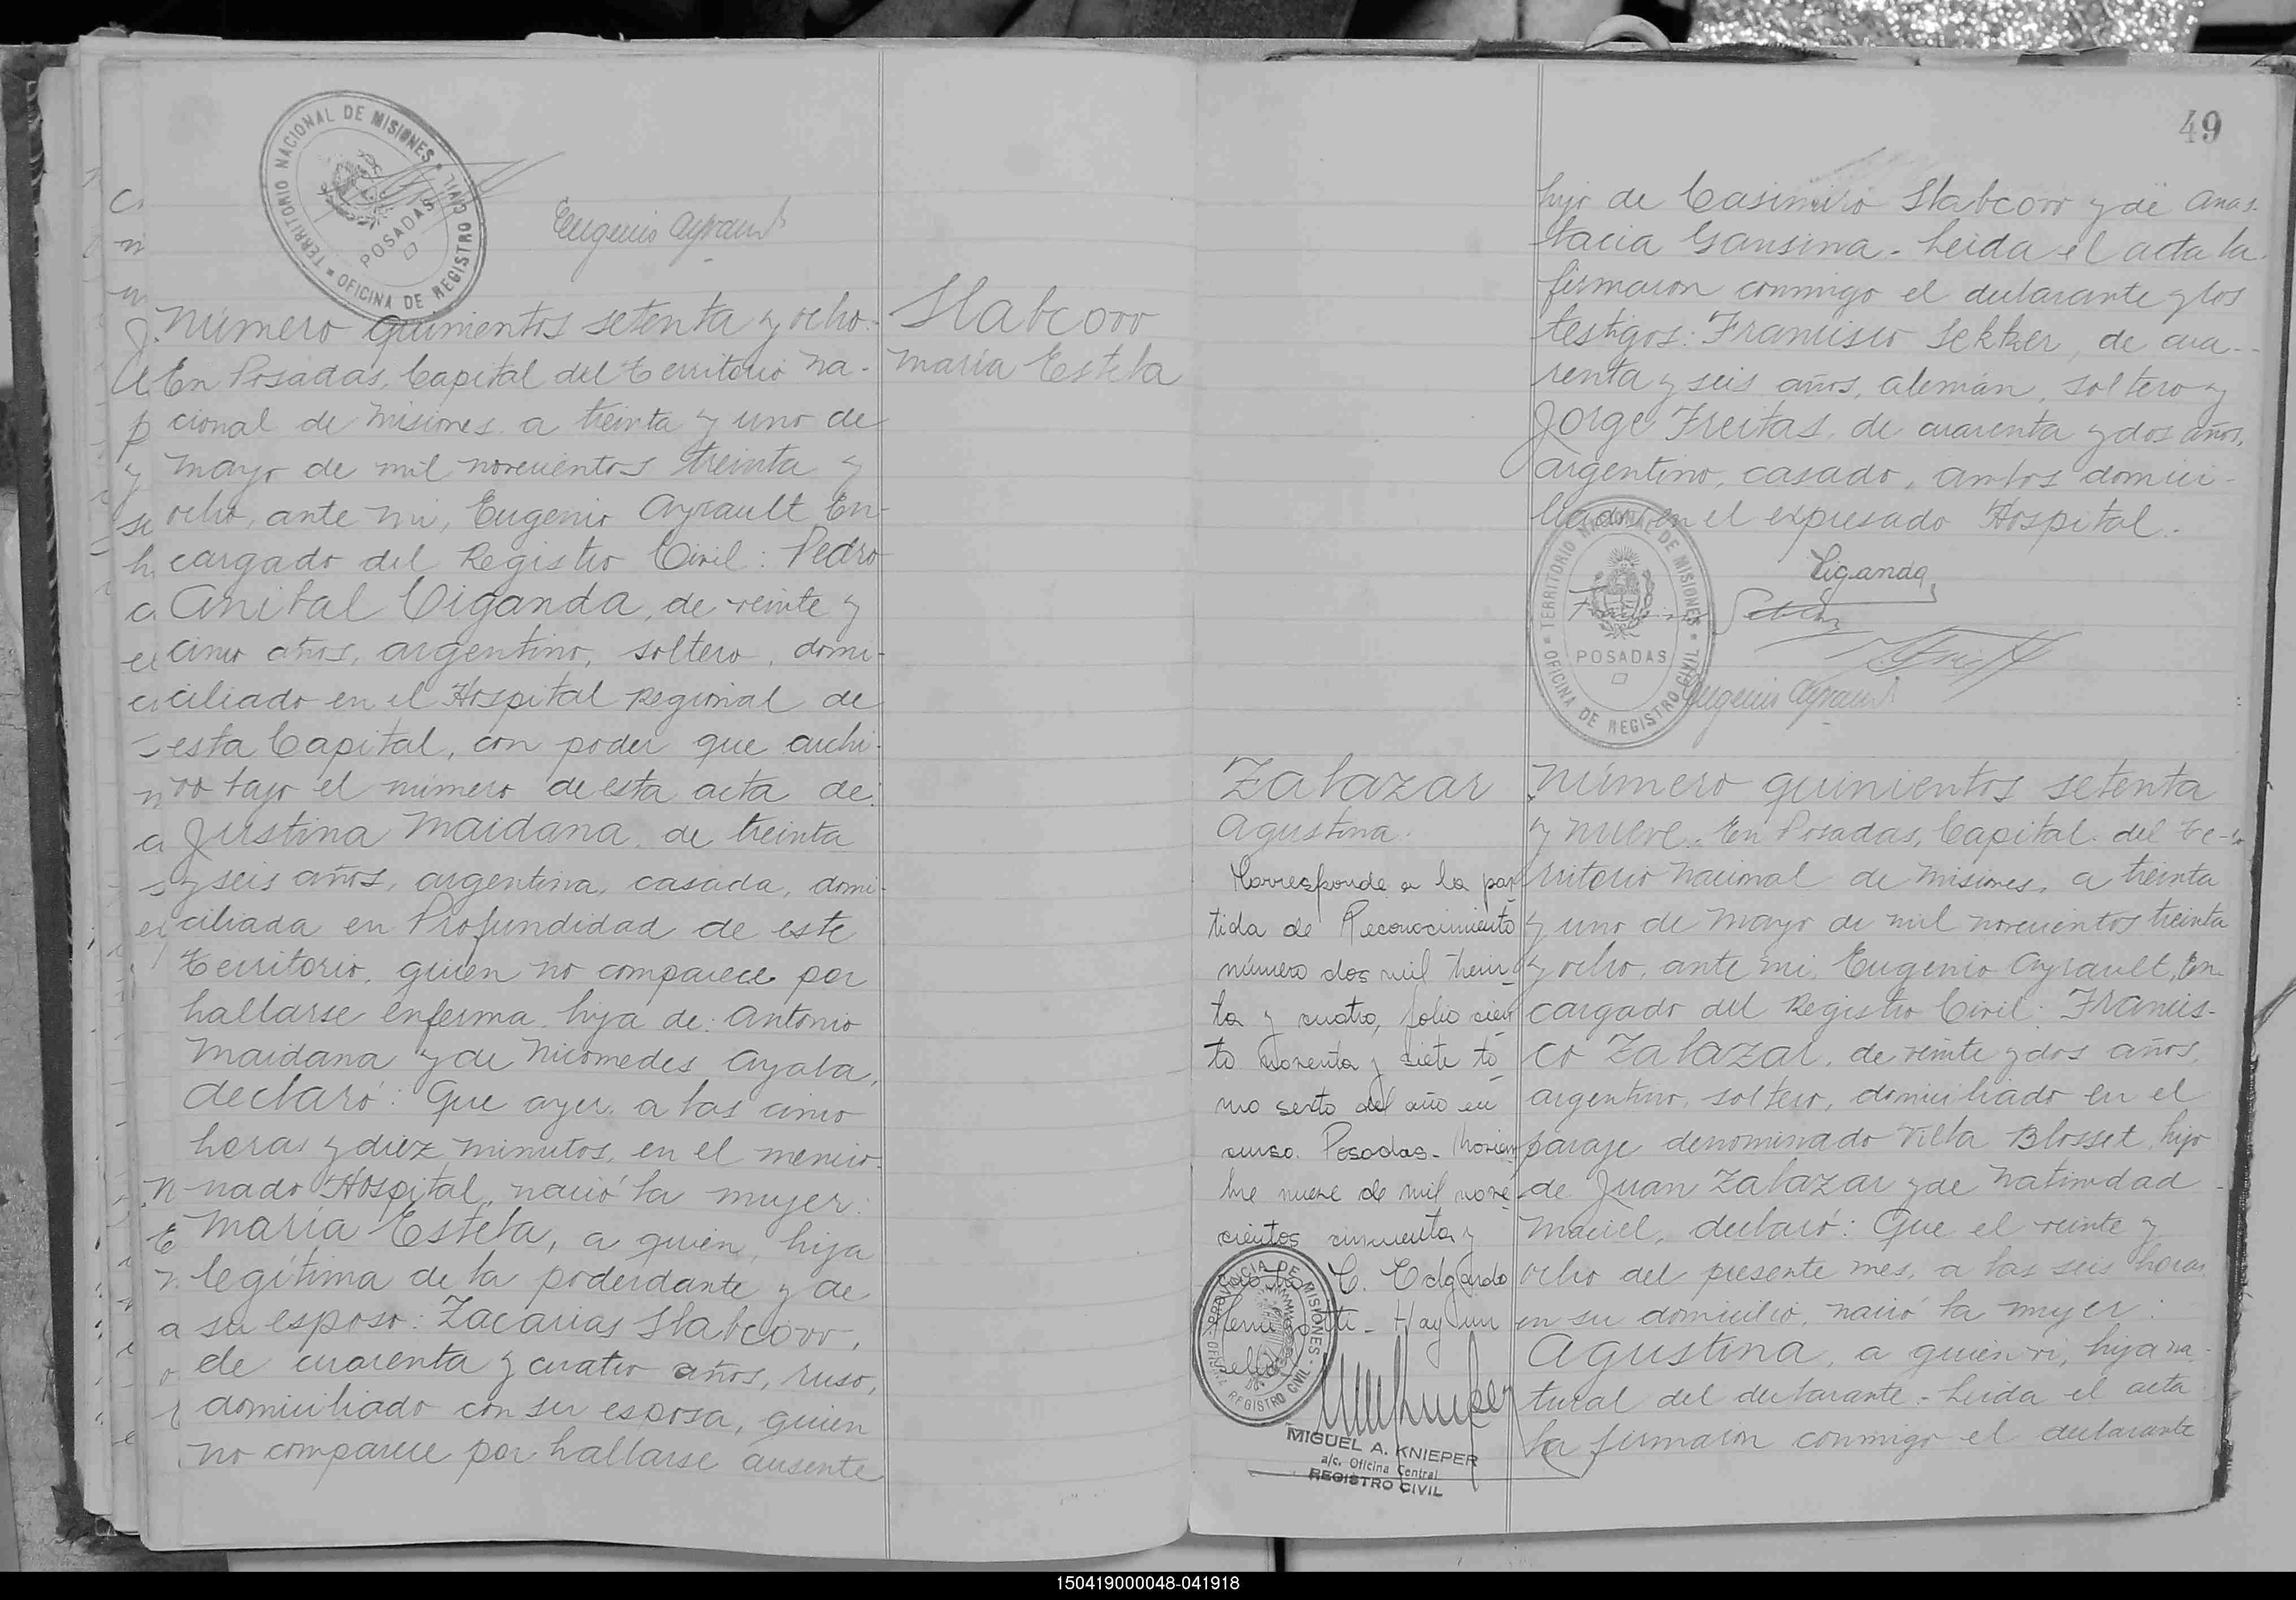 TERRITORIO NACIONAL DE MISIONES
OFICINA DE REGISTRO CIVIL
POSADAS
Eugenio Ayrault
Número quinientos setenta y ocho.-
En Posadas, Capital del Territorio Na-
cional de Misiones, a treinta y uno de
Mayo de mil novecientos treinta y
ocho, ante mi, Eugenio Ayrault, En-
cargado del Registro Civil: Pedro
Anibal Viganda, de veinte y
cinco años, argentino, soltero, domi-
ciliado en el Hospital Regional de
esta Capital, con poder que archi-
vo bajo el número de esta acta de:
Justina Maidana, de treinta
y seis años, argentina, casada, domi-
ciliada en Profundidad de este
Territorio, quien no comparece por
hallarse enferma, hija de: Antonio
Maidana y de Nicomedes Ayala,
declaró: Que ayer, a las cinco
horas y diez minutos, en el mencio-
nado Hospital, nació la mujer:
María Estela, a quien, hija
legítima de la poderdante y de
su esposo: Zacarias Slabcovv,
de cuarenta y cuatro años, ruso,
domiciliado con su esposa, quien
no comparece por hallarse ausente
Slabcovv
María Estela
49
hijo de Casimiro Slabcovv y de Anas-
tacia Gansina.- Leida el acta la
firmaron conmigo el declarante y los
testigos: Francisco Sekker, de cua-
renta y seis años, alemán, soltero y
Jorge Freitas, de cuarenta y dos años,
argentino, casado, ambos domici-
liados en el expresado Hospital.
Viganda
TERRITORIO NACIONAL DE MISIONES
OFICINA DE REGISTRO CIVIL
POSADAS
Eugenio Ayrault
Zalazar
Agustina.
Corresponde a la par-
tida de Reconocimiento
número dos mil trein-
ta y cuatro, folio cien-
to noventa y siete to-
mo sexto del año en
curso. Posadas- Noviem-
bre nueve de mil nove-
cientos cincuenta y
C. Edgardo
Hay un
sello
PROVINCIA DE MISIONES
REGISTRO CIVIL
MIGUEL A. KNIEPER
a/c. Oficina Central
REGISTRO CIVIL
Número quinientos setenta
y nueve.- En Posadas, Capital del Te-
rritorio Nacional de Misiones, a treinta
y uno de Mayo de mil novecientos treinta
y ocho, ante mi, Eugenio Ayrault, En-
cargado del Registro Civil: Francis-
co Zalazar, de veinte y dos años,
argentino, soltero, domiciliado en el
paraje denominado Villa Blosset, hijo
de Juan Zalazar y de Natividad
Maciel, declaró: Que el veinte y
ocho del presente mes, a las seis horas
en su domicilio, nació la mujer:
Agustina, a quien vi, hija na-
tural del declarante.- Leida el acta
la firmaron conmigo el declarante
150419000048-041918